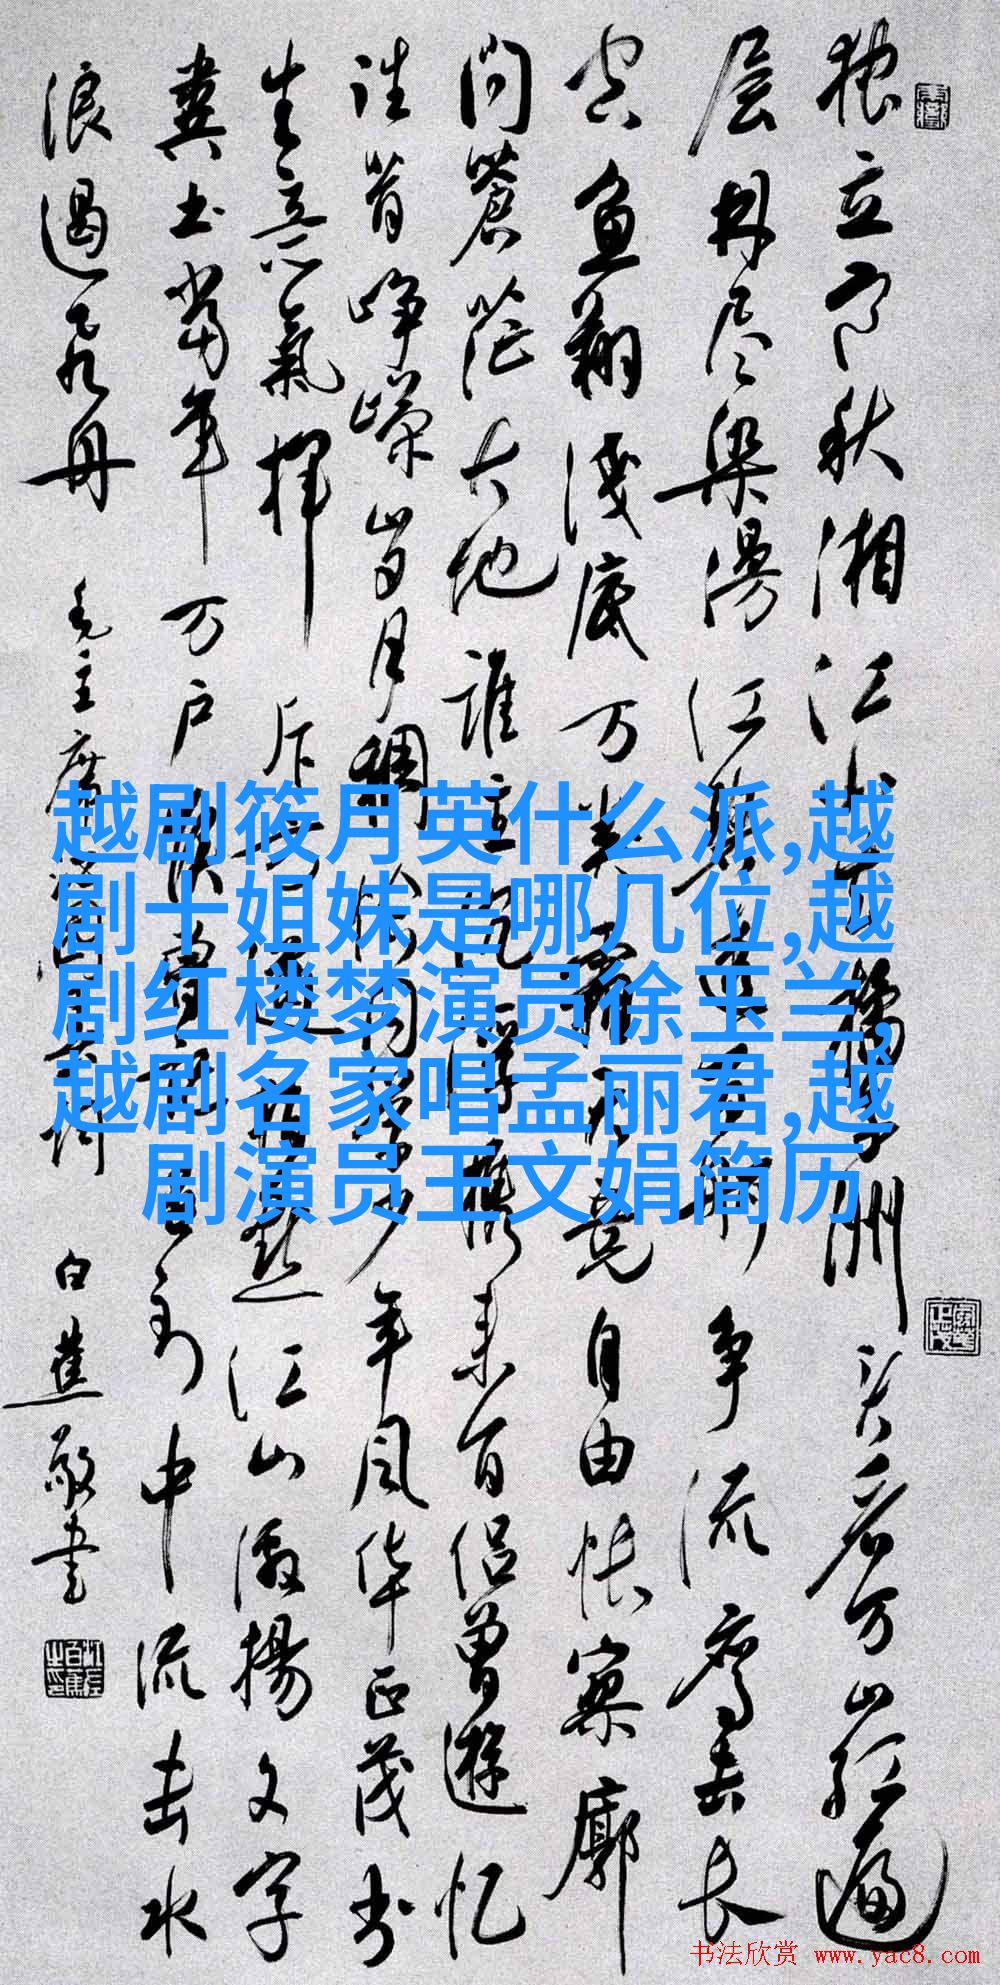 独立寒秋湘江北去橘子洲头看万山红遍
层林尽染漫江碧透百舸争流鹰击长
空鱼翔浅底万类霜天竞自由怅寥廓
问蒼茫大地誰主沉浮携来百侣曾遊忆
往昔峥嵘岁月稠恰同学少年风华正茂书
生意氣挥斥方遒指点江山激揚文字
粪土当年万户侯曾记否到中流击水
浪遏飞舟 毛主席 白蕉敬書
越剧筱月英什么派,越
剧十姐妹是哪几位,越
剧红楼梦演员徐玉兰,
越剧名家唱孟丽君,越
剧演员王文娟简历
书法欣赏 www.yac8.com